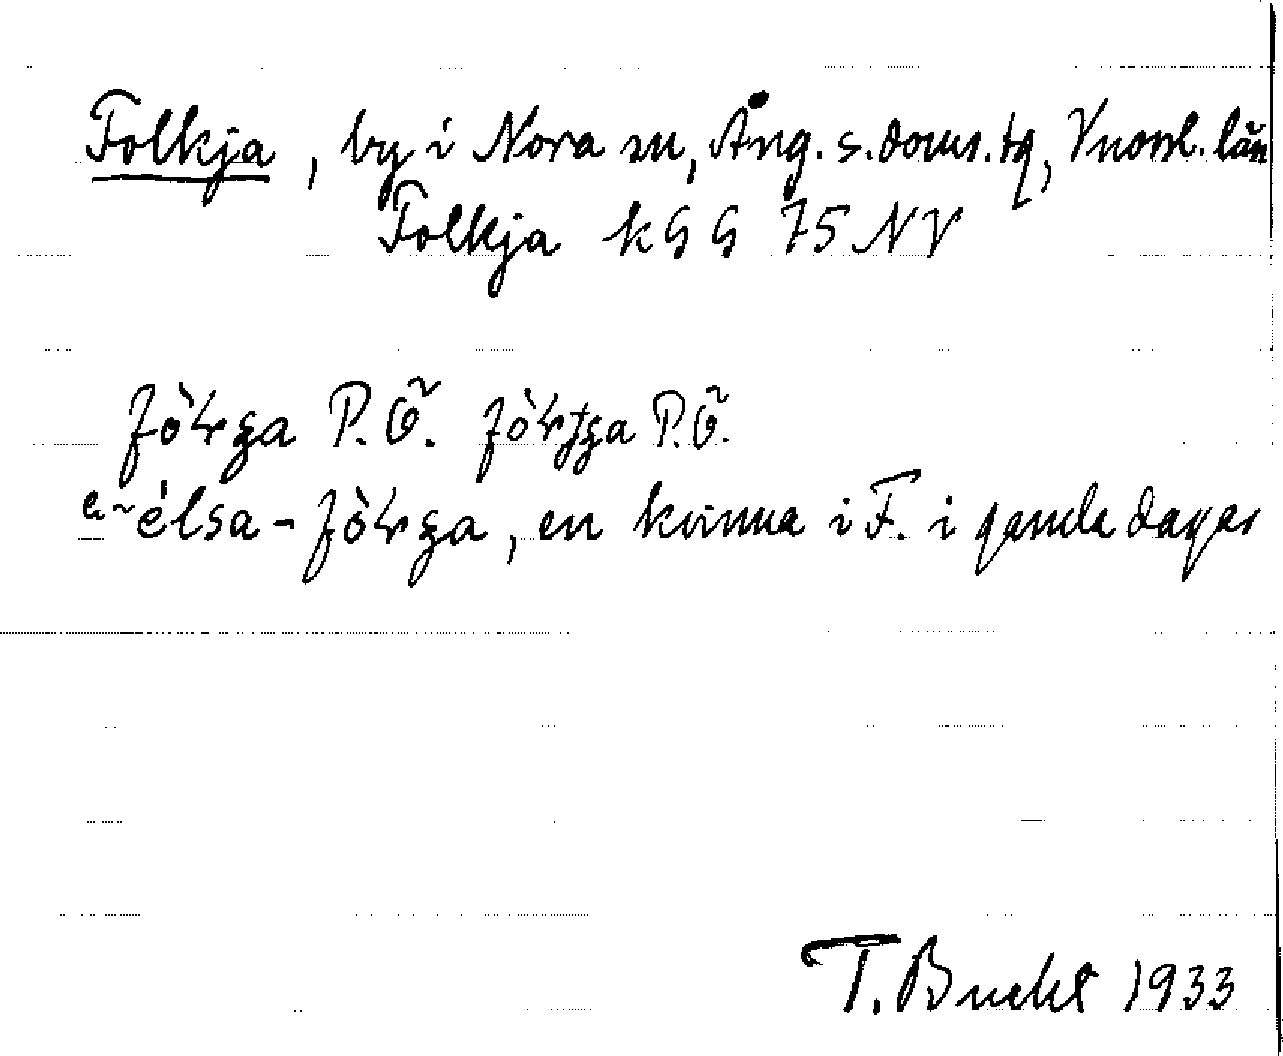 Folkja, by i Nora sn, Ång. s. doms. tg, Vnorrl. län
Folkja kGG 75 NV
fòɬʒa P.Ö. fòɬtʒa P.Ö.
élsa-fòɬʒa, en kvinna i F. i gamla dagar
T. Bucht 1933